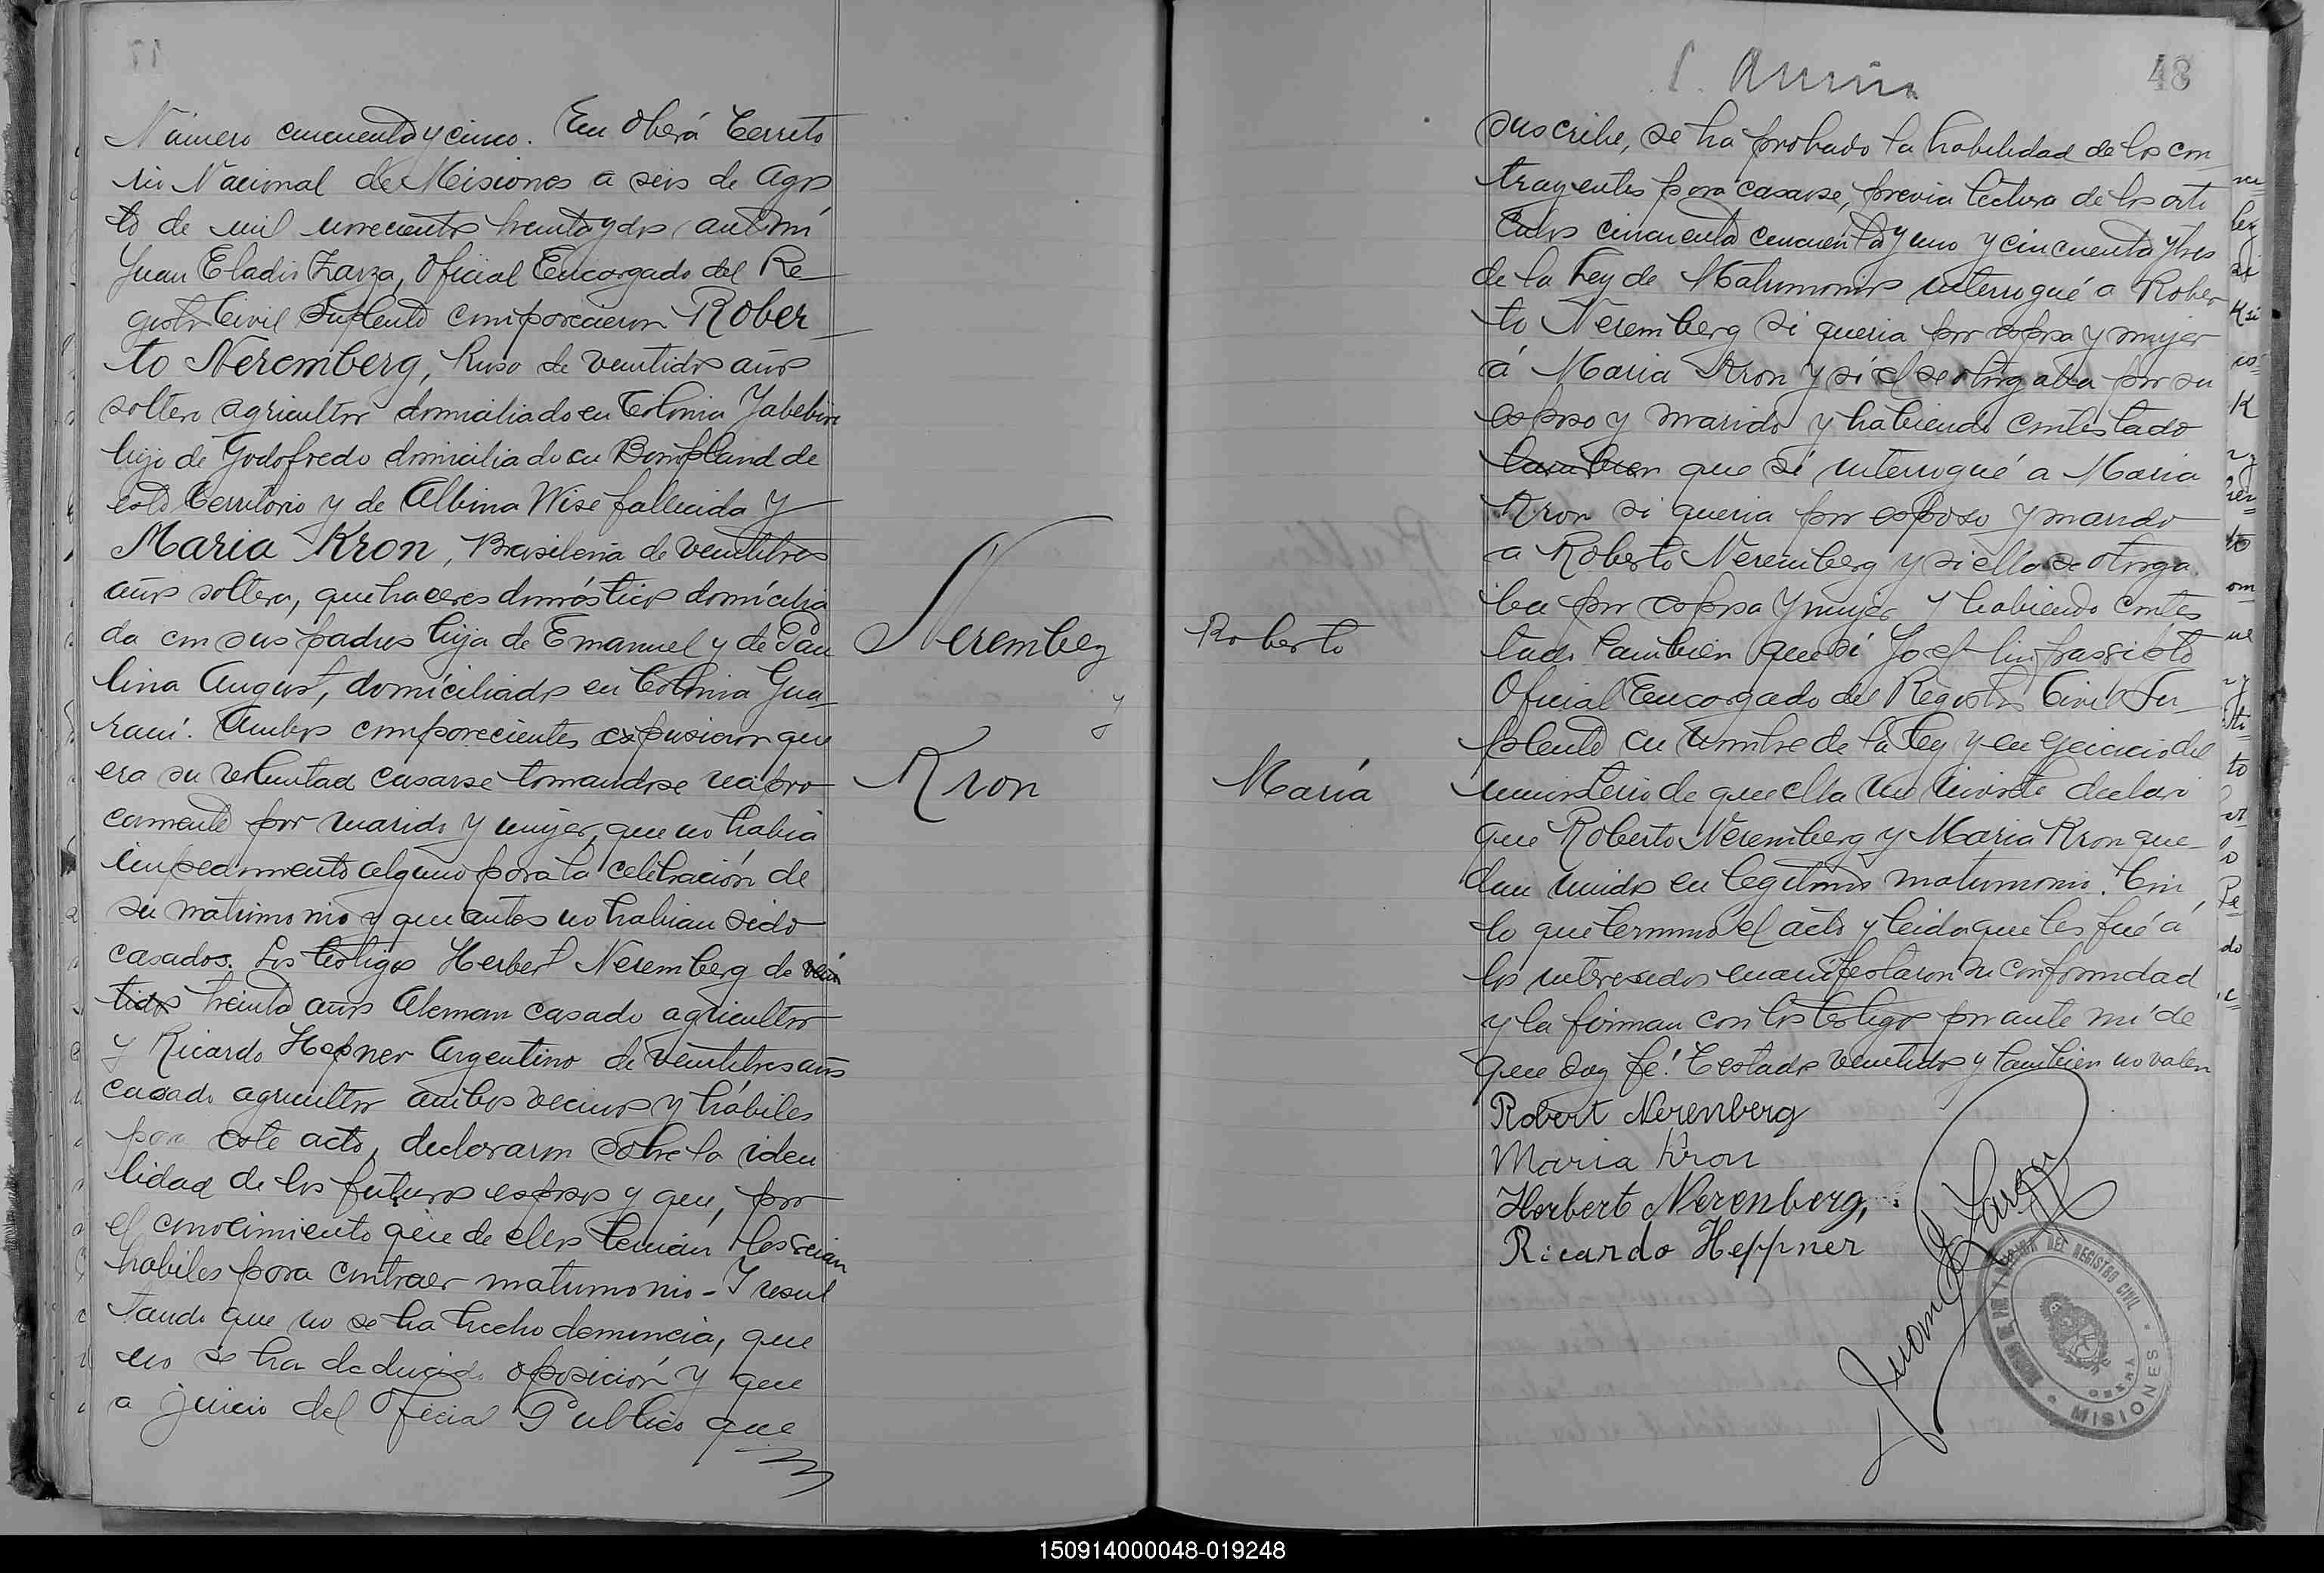 Número cincuenta y cinco. En Oberá Territo
rio Nacional de Misiones a seis de Agos
to de mil novecientos treinta y dos, ante mí
Juan Eladio Zarza, Oficial Encargado del Re-
gistro Civil Suplente comparecieron Rober-
to Neremberg, Ruso de veintidos años
soltero agricultor domiciliado en Colonia Yabebiri
hijo de Godofredo domiciliado en Bompland de
este Territorio y de Albina Wise fallecida y
Maria Kron, Brasileña de veintitres
años soltera, quehaceres domésticos domicilia
da con sus padres hija de Emanuel y de Pau
lina August, domiciliados en Colonia Gua-
raní. Ambos comparecientes expusieron que
era su voluntad casarse tomandose recipro
camente por marido y mujer, que no habia
impedimento alguno para la celebración de
su matrimonio y que antes no habian sido
casados. Los testigos Herbert Neremberg de vein
tidos treinta años Aleman casado agricultor
y Ricardo Hepner Argentino de veintitres años
casado agricultor ambos vecinos y hábiles
para este acto, declararon sobre la iden
tidad de los futuros esposos y que, por
el conocimiento que de ellos tenian los creian
habiles para contraer matrimonio - Y resul
tando que no se ha hecho denuncia, que
no se ha deducido oposición y que
a juicio del Oficial Publico que
Neremberg
y
Kron
48
Roberto
María
suscribe, se ha probado la habilidad de los con
trayentes para casarse, previa lectura de los arti
culos cincuenta cincuenta y uno y cincuenta y tres
de la Ley de Matrimonios interrogué a Rober
to Neremberg si queria por esposa y mujer
á Maria Kron y si él se otorgaba por su
esposo y marido y habiendo contestado
tambien que si interrogué a Maria
Kron si queria por esposo y marido
a Roberto Neremberg y si ella se otorga
ba por esposa y mujer y habiendo contes
tado tambien que si Yo el Infrascripto
Oficial Encargado del Registro Civil Su-
plente en nombre de la Ley y en ejercicio del
ministerio de que ella me inviste declaro
que Roberto Neremberg y Maria Kron que-
dan unidos en legitimo matrimonio. Con
lo que terminó el acto y leida que les fué á
los interesados manifestaron su conformidad
y la firman con los testigos por ante mi de
que doy fé. Testado veintidos y tambien no valen
Robert Nerenberg
Maria Kron
Herbert Nerenberg,
Ricardo Heppner
Juan E Zarza
DEL REGISTRO CIVIL
OBERA
MISIONES
150914000048-019248